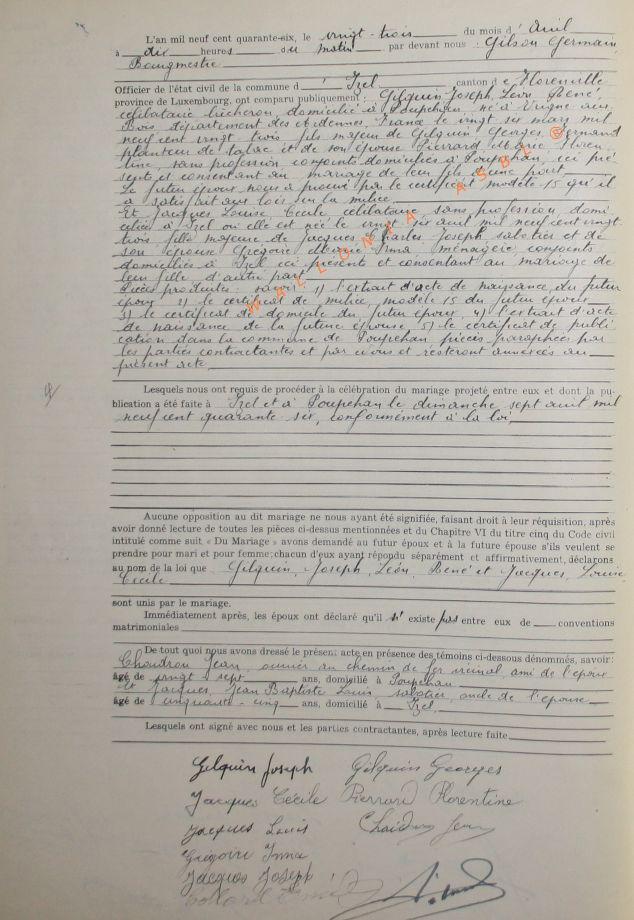 L'an mil neuf cent quarante-six, le vingt-trois du mois d'Avril
à dix heures du matin par devant nous : Gilson Germain,
Bourgmestre
Officier de l'état civil de la commune d'Izel, canton de Florenville
province de Luxembourg, ont comparu publiquement : Gilquin Joseph, Léon, René,
célibataire bûcheron, domicilié à Poupehan, né à Vrigne aux
Bois département des Ardennes France le vingt six mars mil
neuf cent vingt trois fils majeur de Gilquin Georges, Fernand
planteur de tabac et de son épouse Pierrard Marie, Floren
tine, sans profession conjoints domiciliés à Poupehan, ici pré
sents et consentant au mariage de leur fils d'une part.
Le futur époux nous a prouvé par le certificat modèle 15 qu'il
a satisfait aux lois sur la milice
Et Jacques Louise, Cécile, célibataire, sans profession domi
ciliée à Izel où elle est née le vingt six avril mil neuf cent vingt
trois fille majeure de Jacques Charles Joseph, sabotier et de
son épouse Grégoire Irma ménagère conjoints
domiciliés à Izel ici présents et consentant au mariage de
leur fille d'autre part
Pièces produites : savoir : 1) l'extrait d'acte de naissance du futur
époux 2) le certificat de milice, modèle 15 du futur époux
3) le certificat de domicile du futur époux, 4) l'extrait d'acte
de naissance de la future épouse 5) le certificat de publi
cation dans la commune de Poupehan pièces paraphées par
les parties contractantes et par nous et resteront annexées au
présent acte
WALLONIA ASBL ©
Lesquels nous ont requis de procéder à la célébration du mariage projeté entre eux et dont la pu-
blication a été faite à Izel et à Poupehan le dimanche sept avril mil
neuf cent quarante six, conformément à la loi
Aucune opposition au dit mariage ne nous ayant été signifiée, faisant droit à leur réquisition, après
avoir donné lecture de toutes les pièces ci-dessus mentionnées et du Chapitre VI du titre cinq du Code civil
intitulé comme suit « Du Mariage » avons demandé au futur époux et à la future épouse s'ils veulent se
prendre pour mari et pour femme; chacun d'eux ayant répondu séparément et affirmativement, déclarons
au nom de la loi que Gilquin, Joseph, Léon, René et Jacques, Louise
Cécile
sont unis par le mariage.
Immédiatement après, les époux ont déclaré qu'il n'existe pas entre eux de conventions
matrimoniales
De tout quoi nous avons dressé le présent acte en présence des témoins ci-dessous dénommés, savoir :
Jean, ouvrier au chemin de fer vicinal, ami de l'époux
âgé de vingt-sept ans, domicilié à Poupehan
et Jacques, Jean Baptiste Louis, sabotier, oncle de l'épouse
âgé de cinquante-cinq ans, domicilié à Izel
Lesquels ont signé avec nous et les parties contractantes, après lecture faite
Gilquin Joseph Gilquin Georges
Jacques Cécile Pierrard Florentine
Jacques Louis Jean
Grégoire Irma
Jacques Joseph